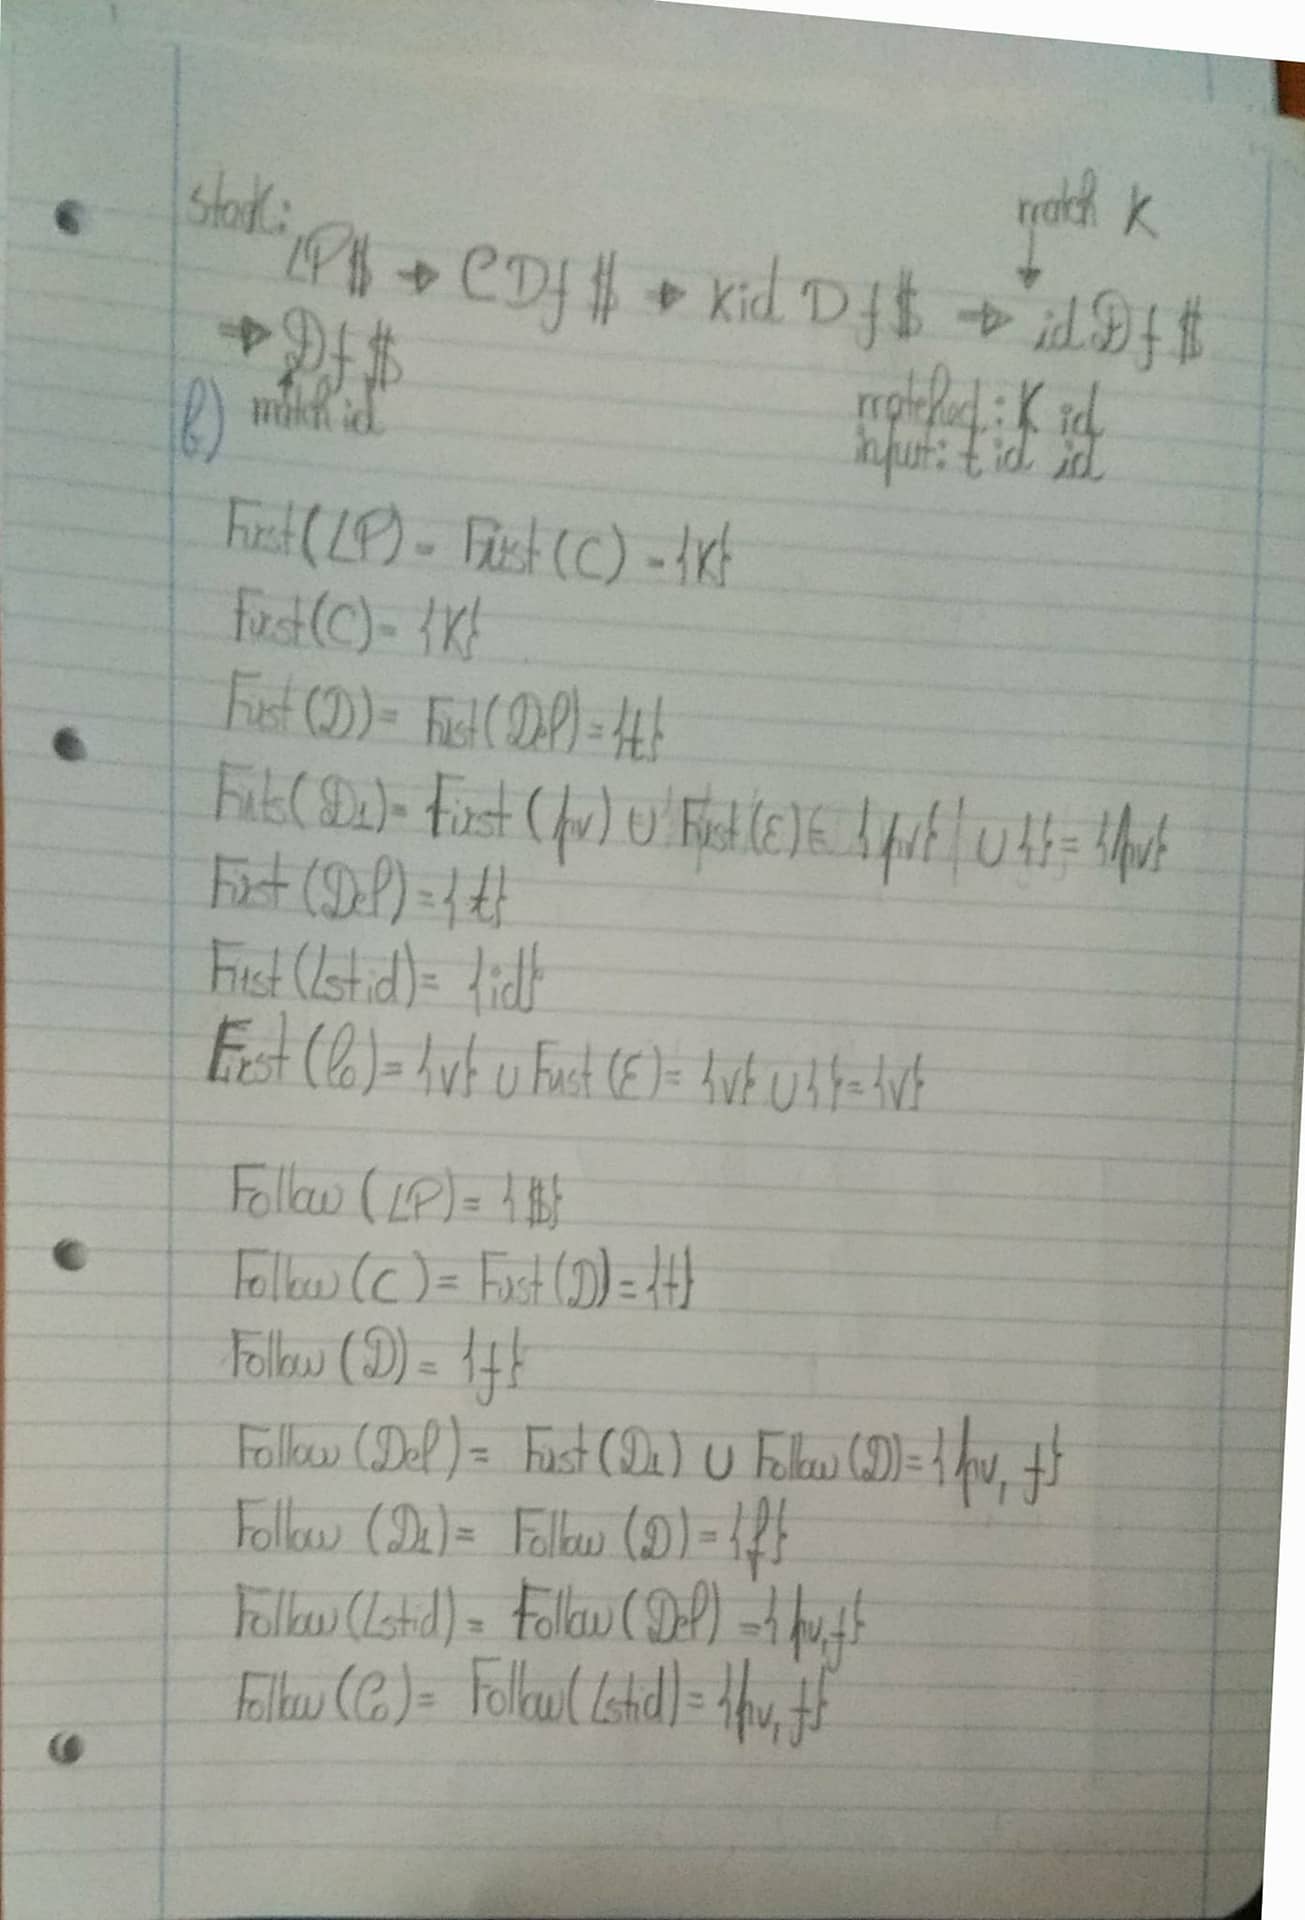 stack:
match K
LP$ → CDf$ → Kid Df$ → idDf$
→ Df$
match id
matched: K id
input: t id id
b)
First(LP) = First(C) = {K}
First(C) = {K}
First(D) = First(Dcl) = {t}
Fits(D1) = First(pv) ∪ First(ε) = {pv} ∪ {} = {pv}
First(Dcl) = {t}
First(Lstid) = {id}
First(Co) = {v} ∪ First(ε) = {v} ∪ {} = {v}
Follow(LP) = {$}
Follow(C) = First(D) = {t}
Follow(D) = {f}
Follow(Dcl) = First(D1) ∪ Follow(D) = {pv, f}
Follow(D1) = Follow(D) = {f}
Follow(Lstid) = Follow(Dcl) = {pv, f}
Follow(Co) = Follow(Lstid) = {pv, f}